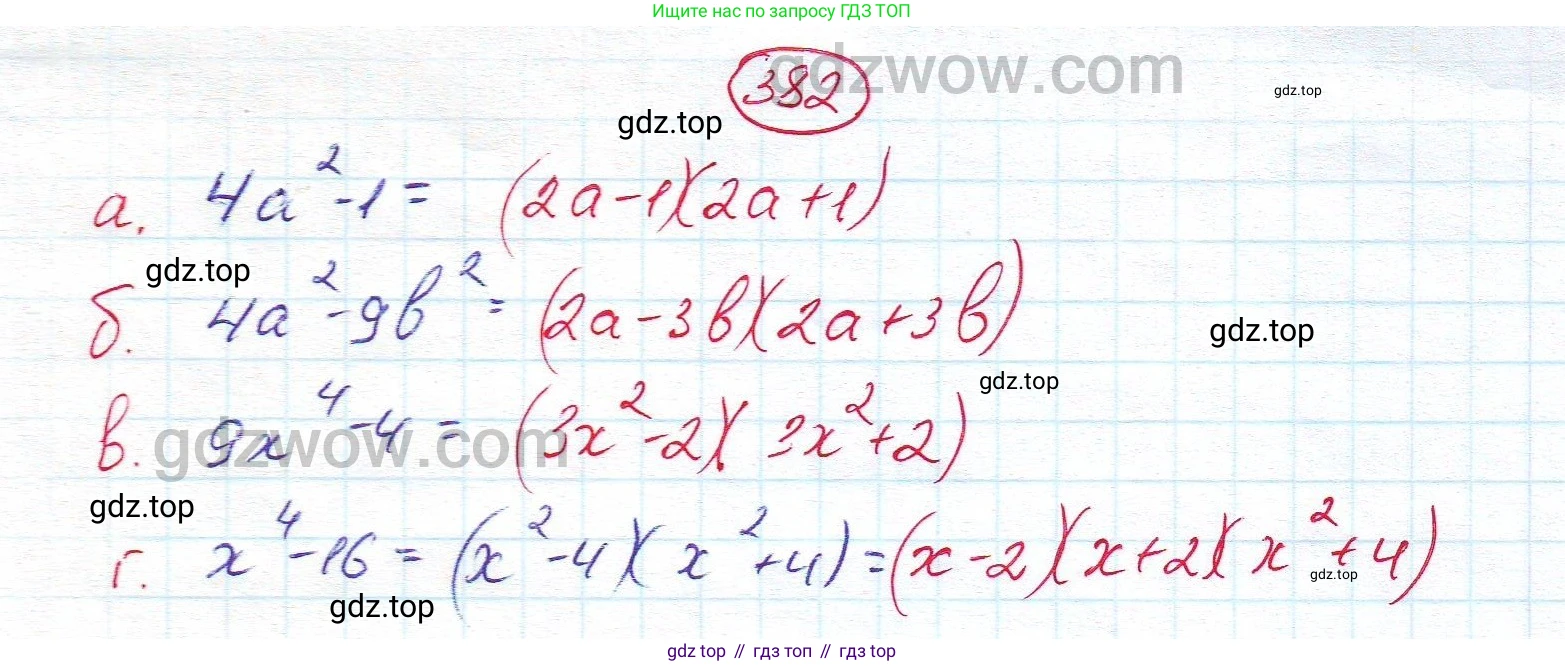 Ищите нас по запросу ГДЗ ТОП
gdzwow.com
382
gdz.top
gdz.top
а. 4a²-1= (2a-1)(2a+1)
gdz.top
б. 4a²-9b²= (2a-3b)(2a+3b)
gdz.top
gdz.top
в. 9x⁴-4= (3x²-2)(3x²+2)
gdzwow.com
gdz.top
г. x⁴-16=(x²-4)(x²+4)=(x-2)(x+2)(x²+4)
gdz.top
gdz.top
gdz top // гдз топ // гдз top